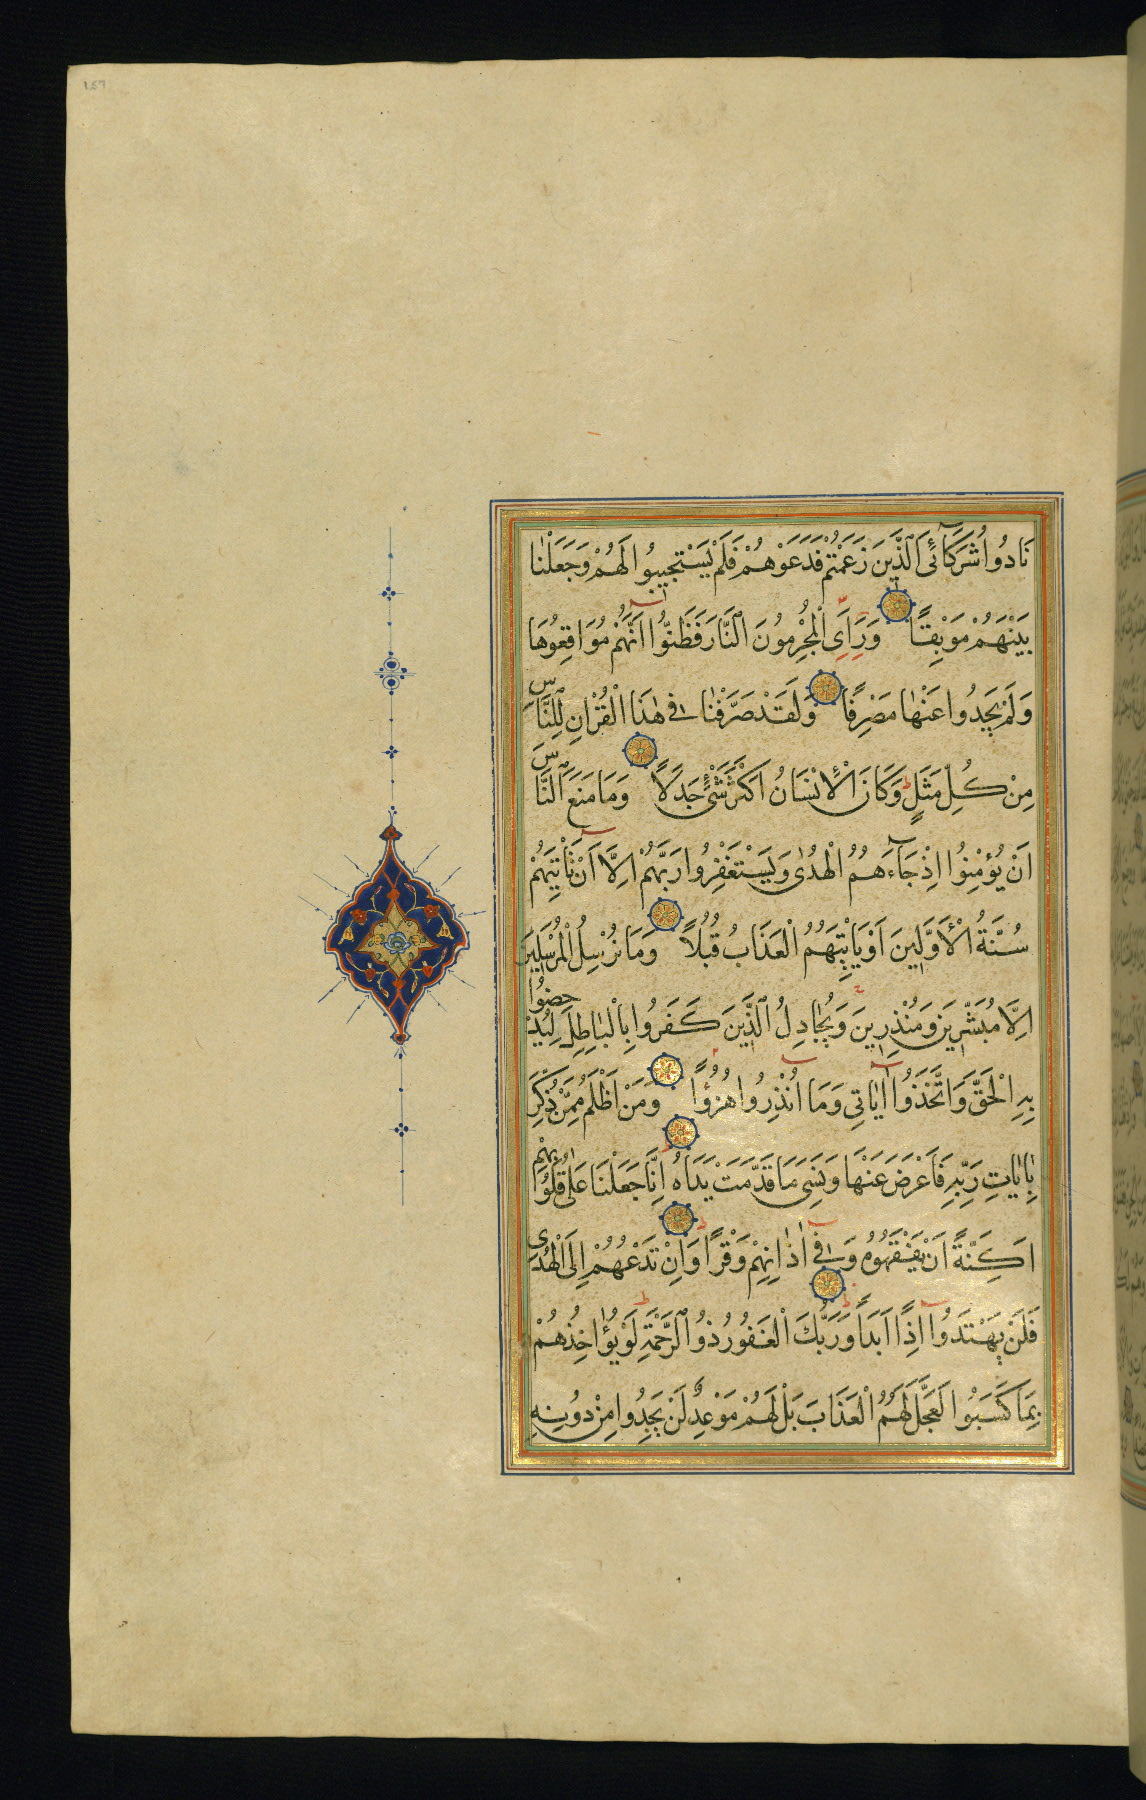 نَادُوا شُرَكَآئِىَ الَّذِينَ زَعَمْتُمْ فَدَعَوْهُمْ فَلَمْ يَسْتَجِيبُوا لَهُمْ وَجَعَلْنَا
بَيْنَهُمْ مَوْبِقًا وَرَأَى الْمُجْرِمُونَ النَّارَ فَظَنُّوا اَنَّهُمْ مُوَاقِعُوهَا
وَلَمْ يَجِدُوا عَنْهَا مَصْرِفًا وَلَقَدْ صَرَّفْنَا فِى هٰذَا الْقُرْاٰنِ لِلنَّاسِ
مِنْ كُلِّ مَثَلٍ وَكَانَ الْاِنْسَانُ اَكْثَرَ شَىْءٍ جَدَلًا وَمَا مَنَعَ النَّاسَ
اَنْ يُؤْمِنُوا اِذْ جَآءَهُمُ الْهُدٰى وَيَسْتَغْفِرُوا رَبَّهُمْ اِلَّآ اَنْ تَاْتِيَهُمْ
سُنَّةُ الْاَوَّلِينَ اَوْ يَاْتِيَهُمُ الْعَذَابُ قُبُلًا وَمَا نُرْسِلُ الْمُرْسَلِينَ
اِلَّا مُبَشِّرِينَ وَمُنْذِرِينَ وَيُجَادِلُ الَّذِينَ كَفَرُوا بِالْبَاطِلِ لِيُدْحِضُوا
بِهِ الْحَقَّ وَاتَّخَذُوآ اٰيَاتِى وَمَآ اُنْذِرُوا هُزُؤًا وَمَنْ اَظْلَمُ مِمَّنْ ذُكِّرَ
بِاٰيَاتِ رَبِّهِ فَاَعْرَضَ عَنْهَا وَنَسِىَ مَا قَدَّمَتْ يَدَاهُ اِنَّا جَعَلْنَا عَلٰى قُلُوبِهِمْ
اَكِنَّةً اَنْ يَفْقَهُوهُ وَفِىٓ اٰذَانِهِمْ وَقْرًا وَاِنْ تَدْعُهُمْ اِلَى الْهُدٰى
فَلَنْ يَهْتَدُوآ اِذًا اَبَدًا وَرَبُّكَ الْغَفُورُ ذُو الرَّحْمَةِ لَوْ يُؤَاخِذُهُمْ
بِمَا كَسَبُوا لَعَجَّلَ لَهُمُ الْعَذَابَ بَلْ لَهُمْ مَوْعِدٌ لَنْ يَجِدُوا مِنْ دُونِهِ